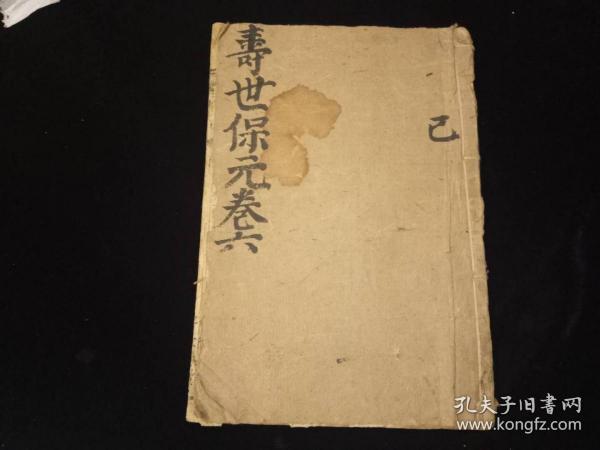 壽世保元卷六
己
孔夫子旧書网
www.kongfz.com